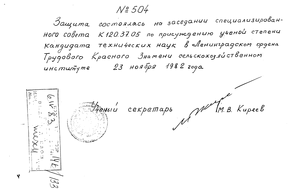 № 504
Защита состоялась на заседании специализирован-
ного совета К 120.37.05 по присуждению ученой степени
кандидата технических наук в Ленинградском ордена
Трудового Красного Знамени сельскохозяйственном
институте 23 ноября 1982 года
Ученый секретарь М.В. Киреев